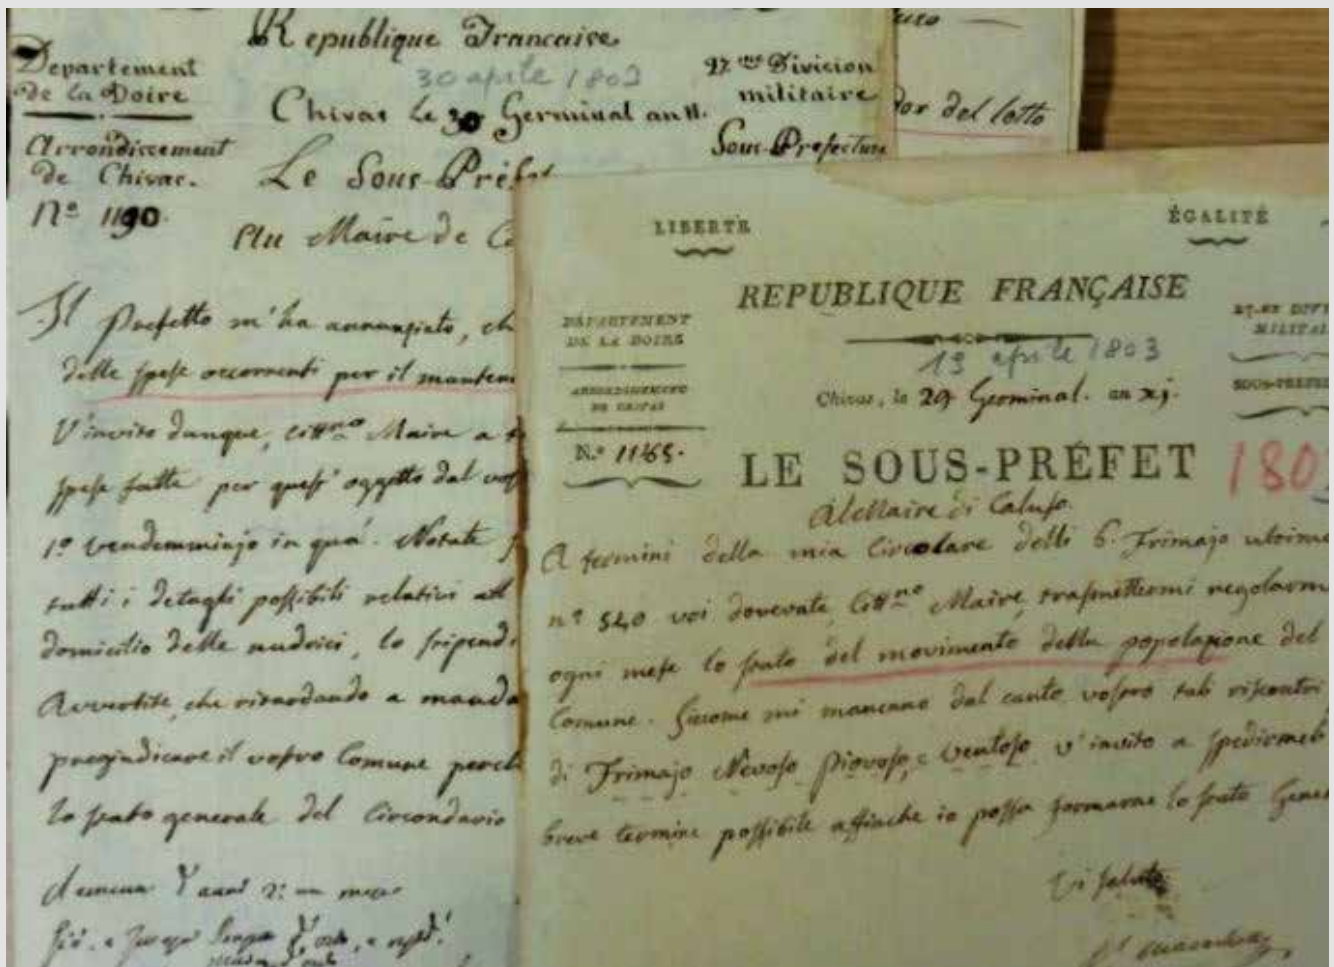 Republique Francaise
Departement
de la Doire
30 aprile 1803
27.me Division
militaire
Chivas Le 30 Germinal an 11.
Sous-Prefecture
Arrondissement
de Chivas.
Le Sous-Préfet
N.o 1190
Au Maire de C
Il Prefetto m'ha annunziato, ch
delle spese occorrenti per il manten
V'invito dunque, Citt.no Maire a
spese fatte per quest' oggetto dal vos
1.o vendemmiajo in quá. Notate
tutti i detagli possibili relativi all
domicilio delle nudrici, lo stipendi
Avvertite, che ritardando a manda
pregiudicare il vostro Comune perch
lo stato generale del Circondario
del lotto
LIBERTÈ
ÉGALITÉ
REPUBLIQUE FRANÇAISE
DÉPARTEMENT
DE LA DOIRE
27.ME DIVI
MILITAI
19 aprile 1803
ARRONDISSEMENT
DE CHIVAS
Chivas, le 29 Germinal. an xj.
SOUS-PREFE
N.o 1165.
LE SOUS-PRÉFET
1803
Al Maire di Caluso.
A termini della mia Circolare delli 6. Frimajo ultimo
n.o 540 voi dovevate, Citt.no Maire, trasmettermi regolarm
ogni mese lo stato del movimento della popolazione del
Comune. Siccome mi mancano dal canto vostro tali riscontri
di Frimajo Nevoso Piovoso, e Ventoso v'invito a spedirmeli
breve termine possibile affinche io possa formarne lo stato Gene
Vi saluto